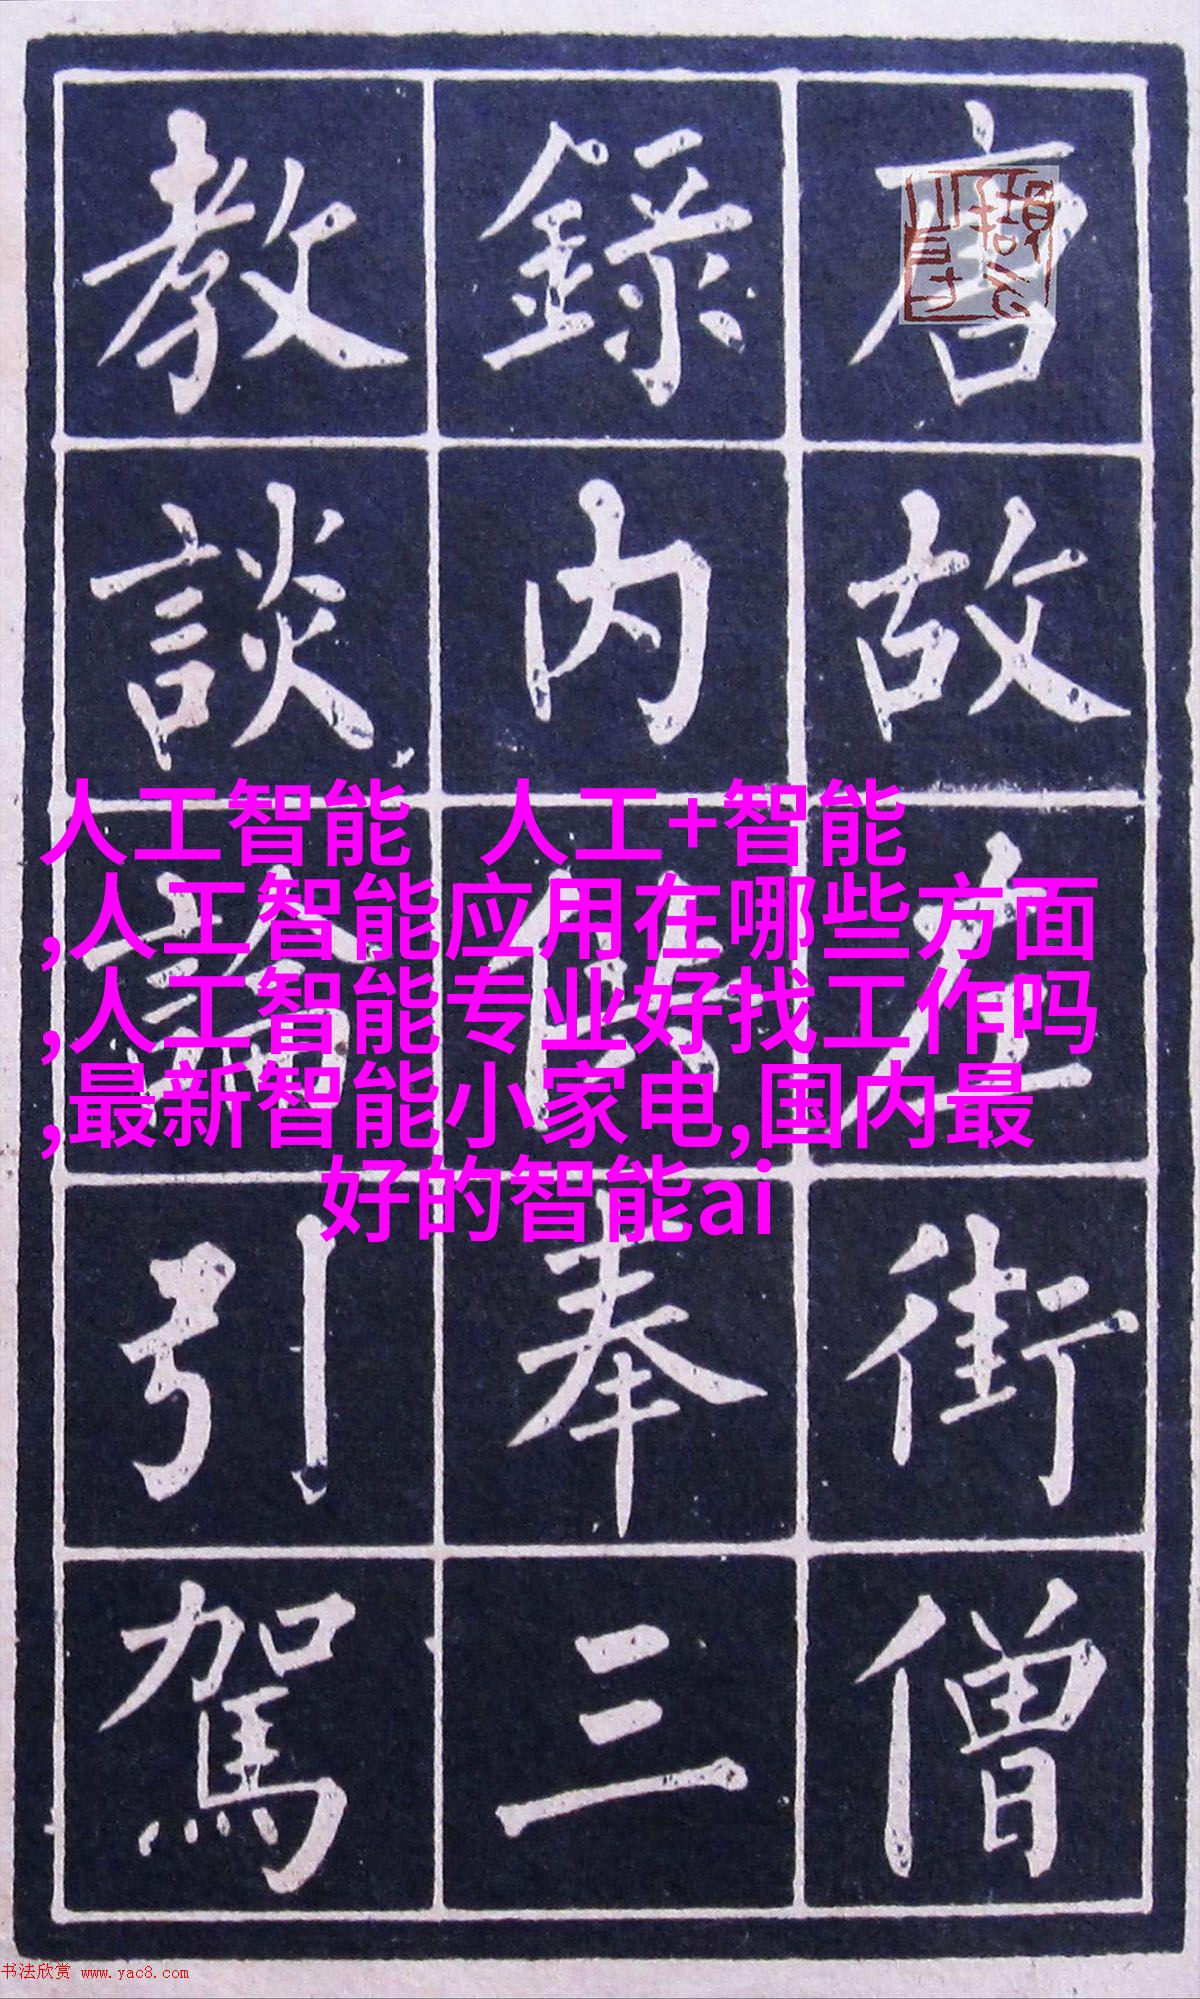 唐故左街僧
錄内供奉三
教談論引駕
人工智能 人工+智能
,人工智能应用在哪些方面
,人工智能专业好找工作吗
,最新智能小家电,国内最
好的智能ai
书法欣赏 www.yac8.com